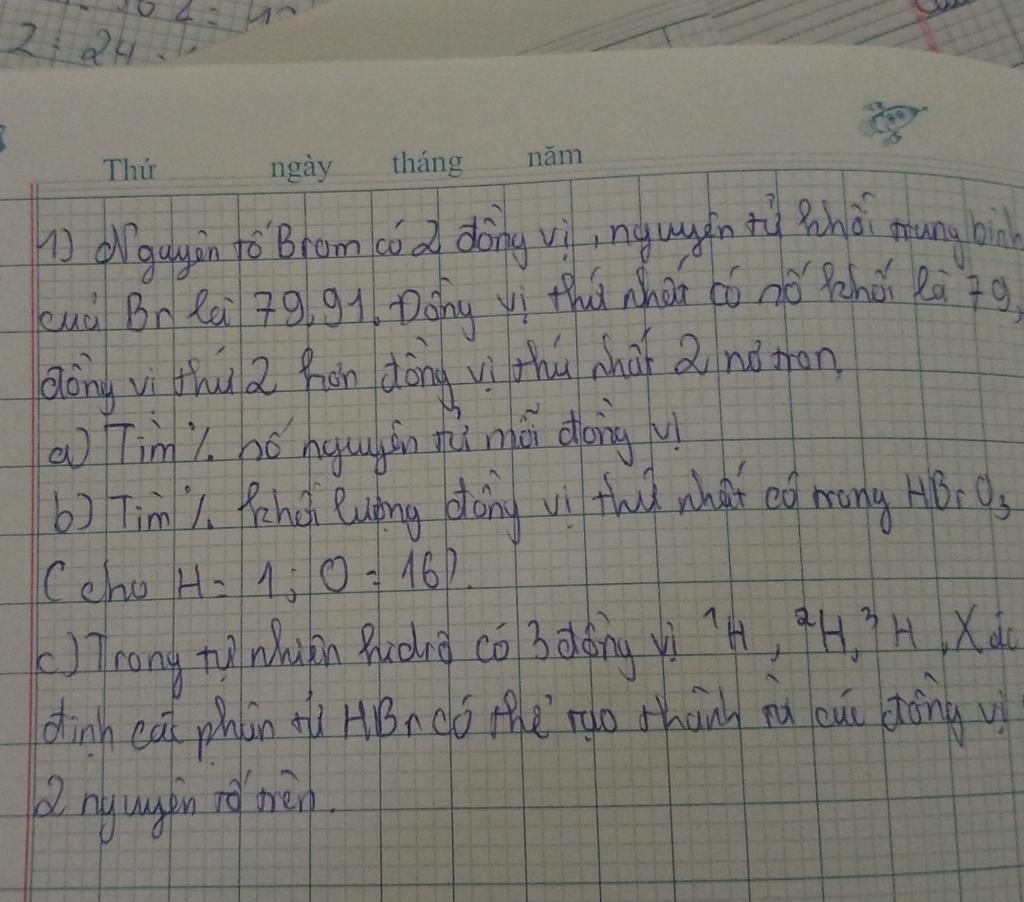 2 = 24
Thứ ngày tháng năm
1) Nguyên tố Brom có 2 đồng vị, nguyên tử khối trung bình
của Br là 79,91. Đồng vị thứ nhất có số khối là 79,
đồng vị thứ 2 hơn đồng vị thứ nhất 2 nơtron.
a) Tìm % số nguyên tử mỗi đồng vị
b) Tìm % khối lượng đồng vị thứ nhất có trong HBrO3
(cho H = 1; O = 16).
c) Trong tự nhiên hidrô có 3 đồng vị ¹H, ²H, ³H. Xác
định các phân tử HBr có thể tạo thành từ các đồng vị
2 nguyên tố trên.